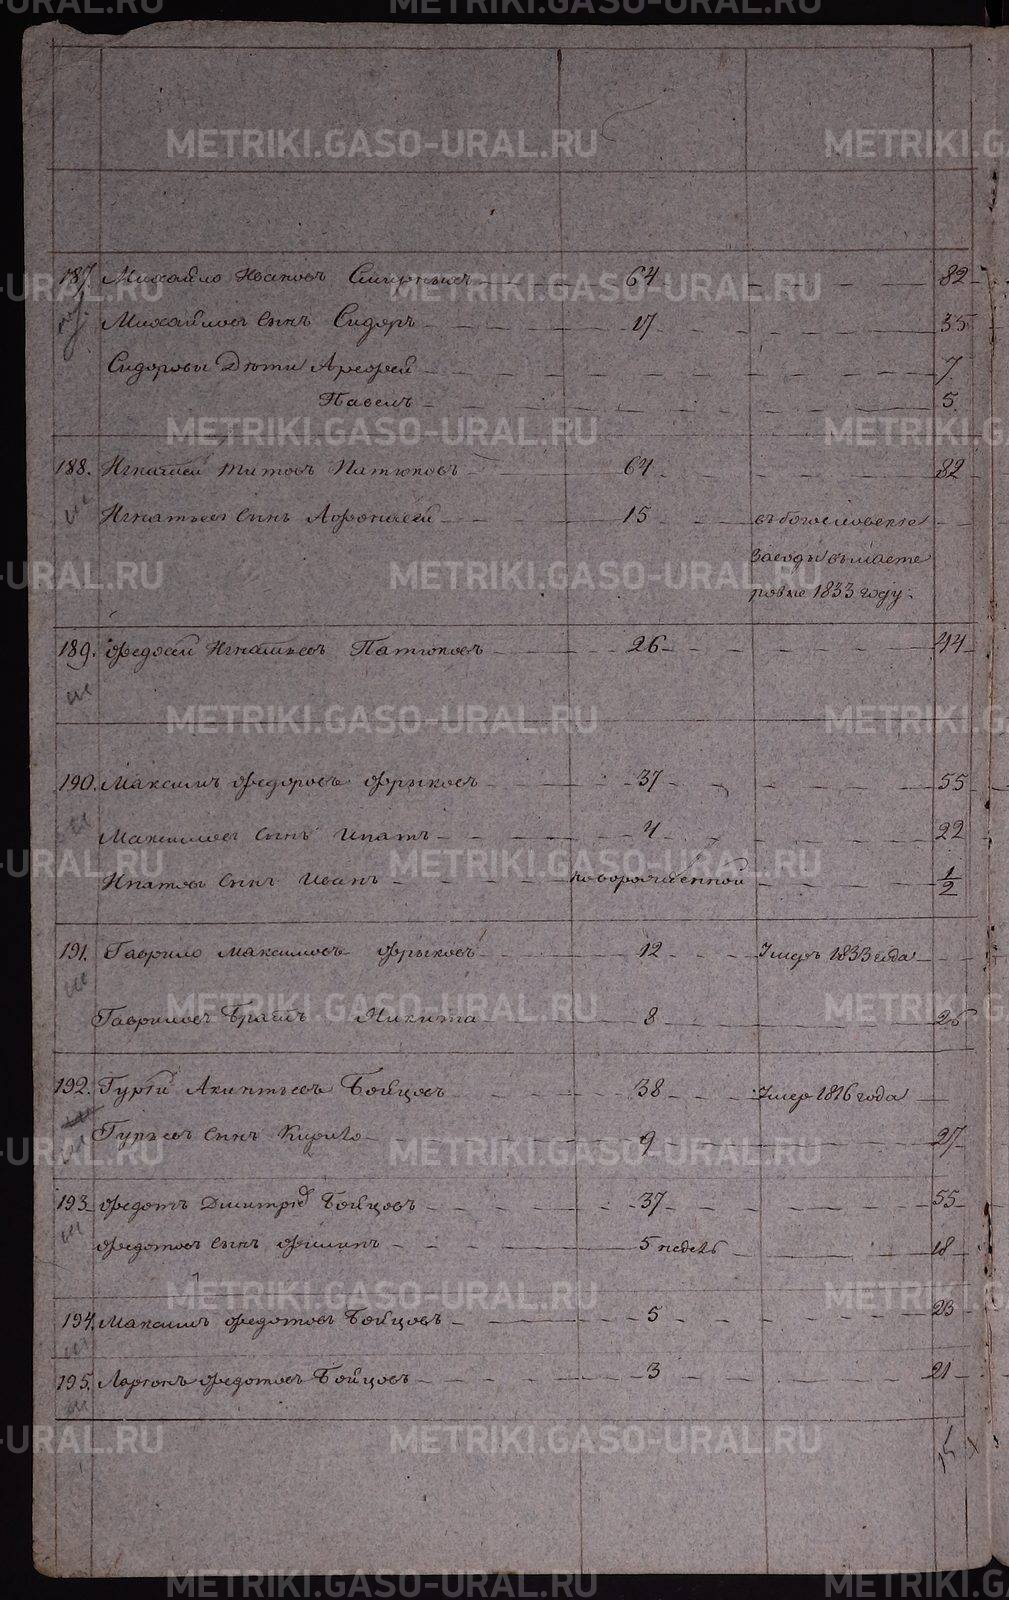 187. Михайло Ивановъ Смирныхъ 64 82
Михайловъ Сынъ Сидоръ 17 35
Сидоровы Дѣти Арефей 7
Павелъ 5
188. Игнатей Титовъ Патюковъ 64 82
Игнатьевъ Сынъ Афонасей 15 въ богословские
заводы въ мастеровые 1833 году.
189. Федосей Игнатьевъ Патюковъ 26 44
190. Максимъ Федоровъ Фрыковъ 37 55
Максимовъ Сынъ Ипатъ 4 22
Ипатовъ Сынъ Иванъ новорожденной 1/2
191. Гаврило Максимовъ Фрыковъ 12 Умеръ 1833 года
Гавриловъ Братъ Никита 8 26
192. Гурей Акинтьевъ Бойцовъ 38 Умер 1816 года
Гурьевъ Сынъ Кирило 9 27
193. Федотъ Дмитриевъ Бойцовъ 37 55
Федотовъ Сынъ Филипъ 5 недель 18
194. Максимъ Федотовъ Бойцовъ 5 23
195. Ларионъ Федотовъ Бойцовъ 3 21
METRIKI.GASO-URAL.RU